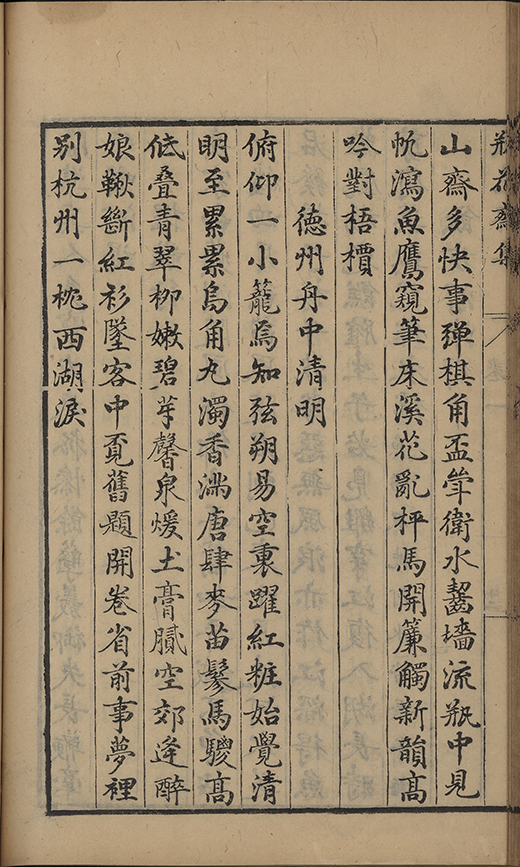 瓶花齋集
山齋多快事彈棋角盃斝衛水齧墻流瓶中見
帆瀉魚鷹窺筆床溪花亂枰馬開簾觸新韻高
吟對梧檟
德州舟中清明
俯仰一小籠焉知弦朔易空裏躍紅粧始覺清
明至累累烏角丸濁香沸唐肆麥苗鬖馬騣高
低疊青翠柳嫩碧芽馨泉煖土膏膩空郊逢醉
娘鞦斷紅衫墜客中覔舊題開卷省前事夢裡
別杭州一枕西湖淚